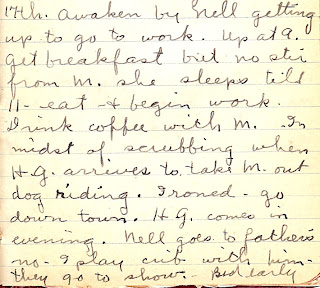 17th. Awaken by Nell getting
up to go to work. Up at 9.
Get breakfast but no stir
from M. she sleeps till
11 - eat & begin work.
Drink coffee with M. In
midst of scrubbing when
H.G. arrives to take M. out
dog riding. Ironed - go
down town. H.G. comes in
evening. Nell goes to fathers
no - I play crib with him -
they go to show - Bed early